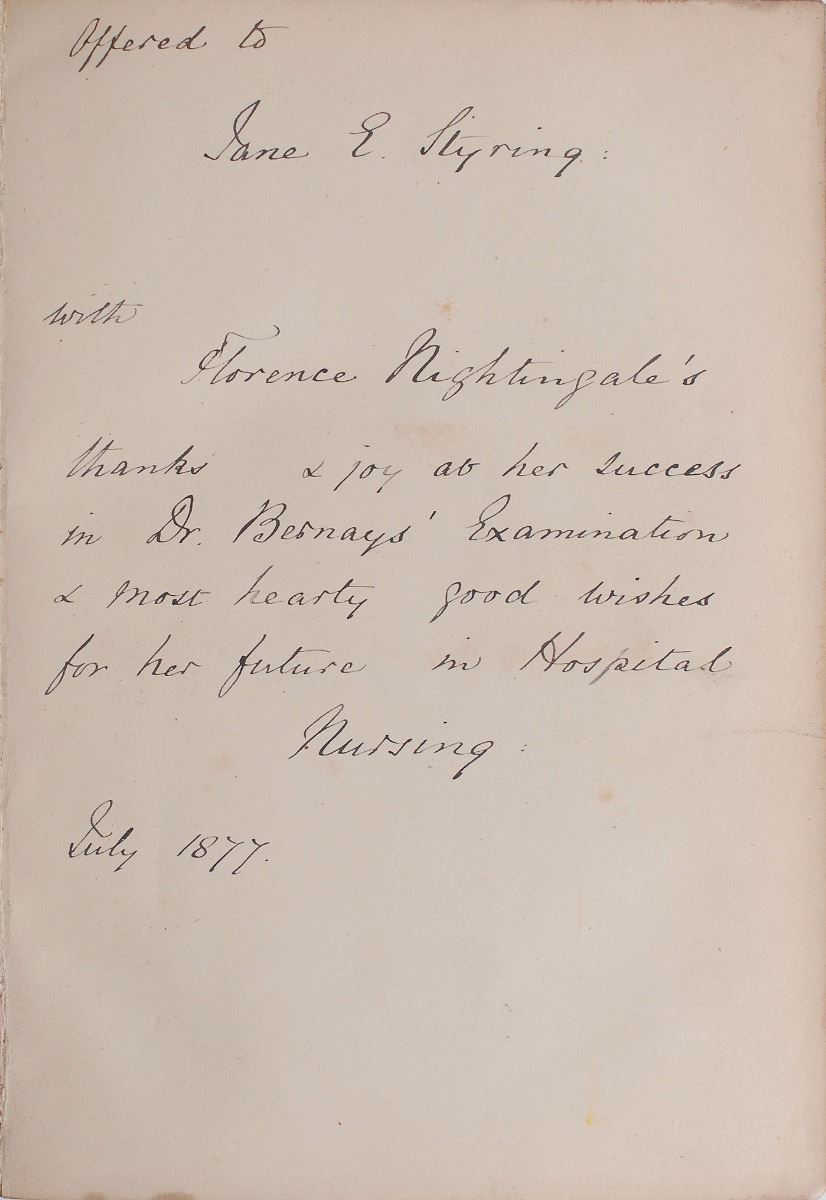 Offered to
Jane E. Styring:
with
Florence Nightingale's
thanks & joy at her success
in Dr. Bernays' Examination
& most hearty good wishes
for her future in Hospital
Nursing:
July 1877.